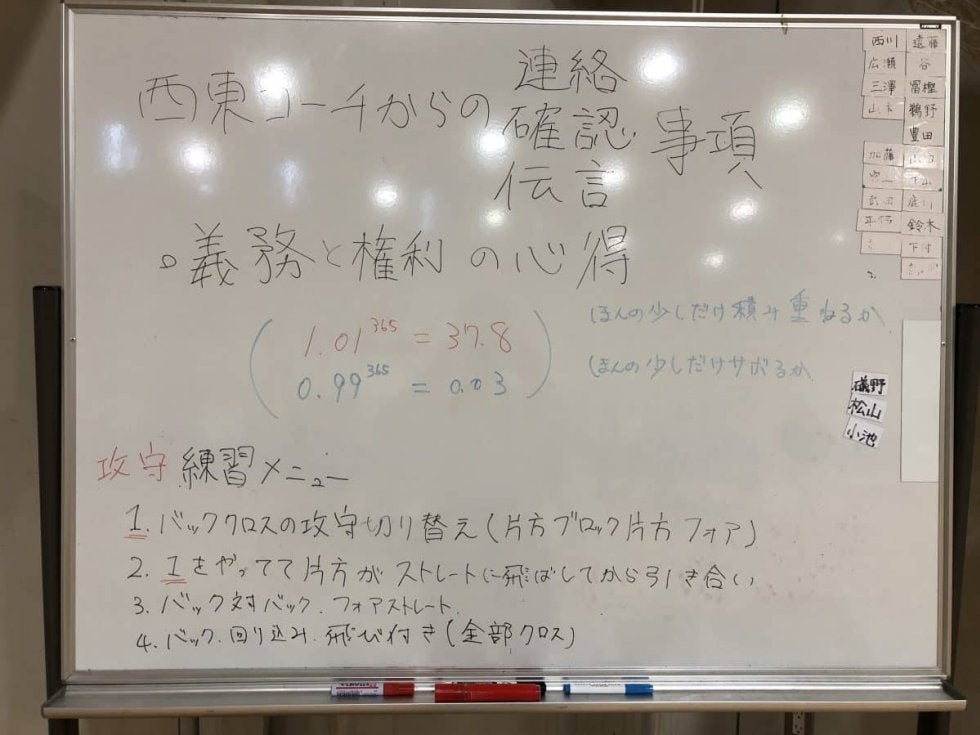 西東コーチからの 連絡 確認 伝言 事項
。義務と権利の心得
(1.01^365 = 37.8) ほんの少しだけ積み重ねるか
(0.99^365 = 0.03) ほんの少しだけサボるか
攻守 練習メニュー
1. バッククロスの攻守切り替え(片方ブロック片方フォア)
2. 1をやってて片方がストレートに飛ばしてから引き合い
3. バック対バック.フォアストレート.
4. バック.回り込み.飛び付き(全部クロス)
西川 遠藤
広瀬 谷
三澤 冨樫
山本 鵜野
豊田
加藤
武田
鈴木
下村
礒野
松山
小池